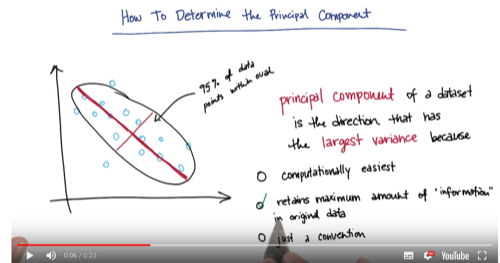 How To Determine the Principal Component
95% of data
points within oval
principal component of a dataset
is the direction that has
the largest variance because
computationally easiest
retains maximum amount of "information"
in original data
just a convention
0:06 / 0:23
YouTube